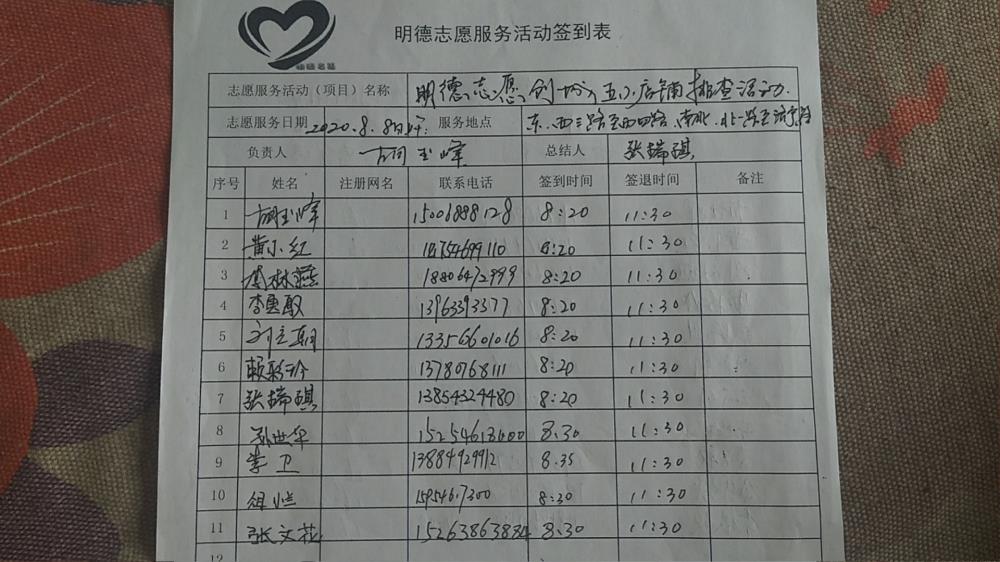 明德志愿服务活动签到表
志愿服务活动（项目）名称 明德志愿创城入五小店铺排查活动.
志愿服务日期 2020.8.8日 服务地点 东、西三路至西四路、南北、北一路至
负责人 胡玉峰 总结人 张瑞琪
序号 姓名 注册网名 联系电话 签到时间 签退时间 备注
1 胡玉峰 15006888128 8:20 11:30
2 黄小红 8:20 11:30
3 杨林燕 18806472999 8:20 11:30
4 李惠敏 13963393577 8:20 11:30
5 刘立朝 13356601016 8:20 11:30
6 13780768111 8:20 11:30
7 张瑞琪 13854324480 8:20 11:30
8 孙世华 15254613000 8:30 11:30
9 李卫 13884929912 8.35 11:30
10 15954617300 8:30 11:30
11 张文花 15263863884 8:30 11:30
12